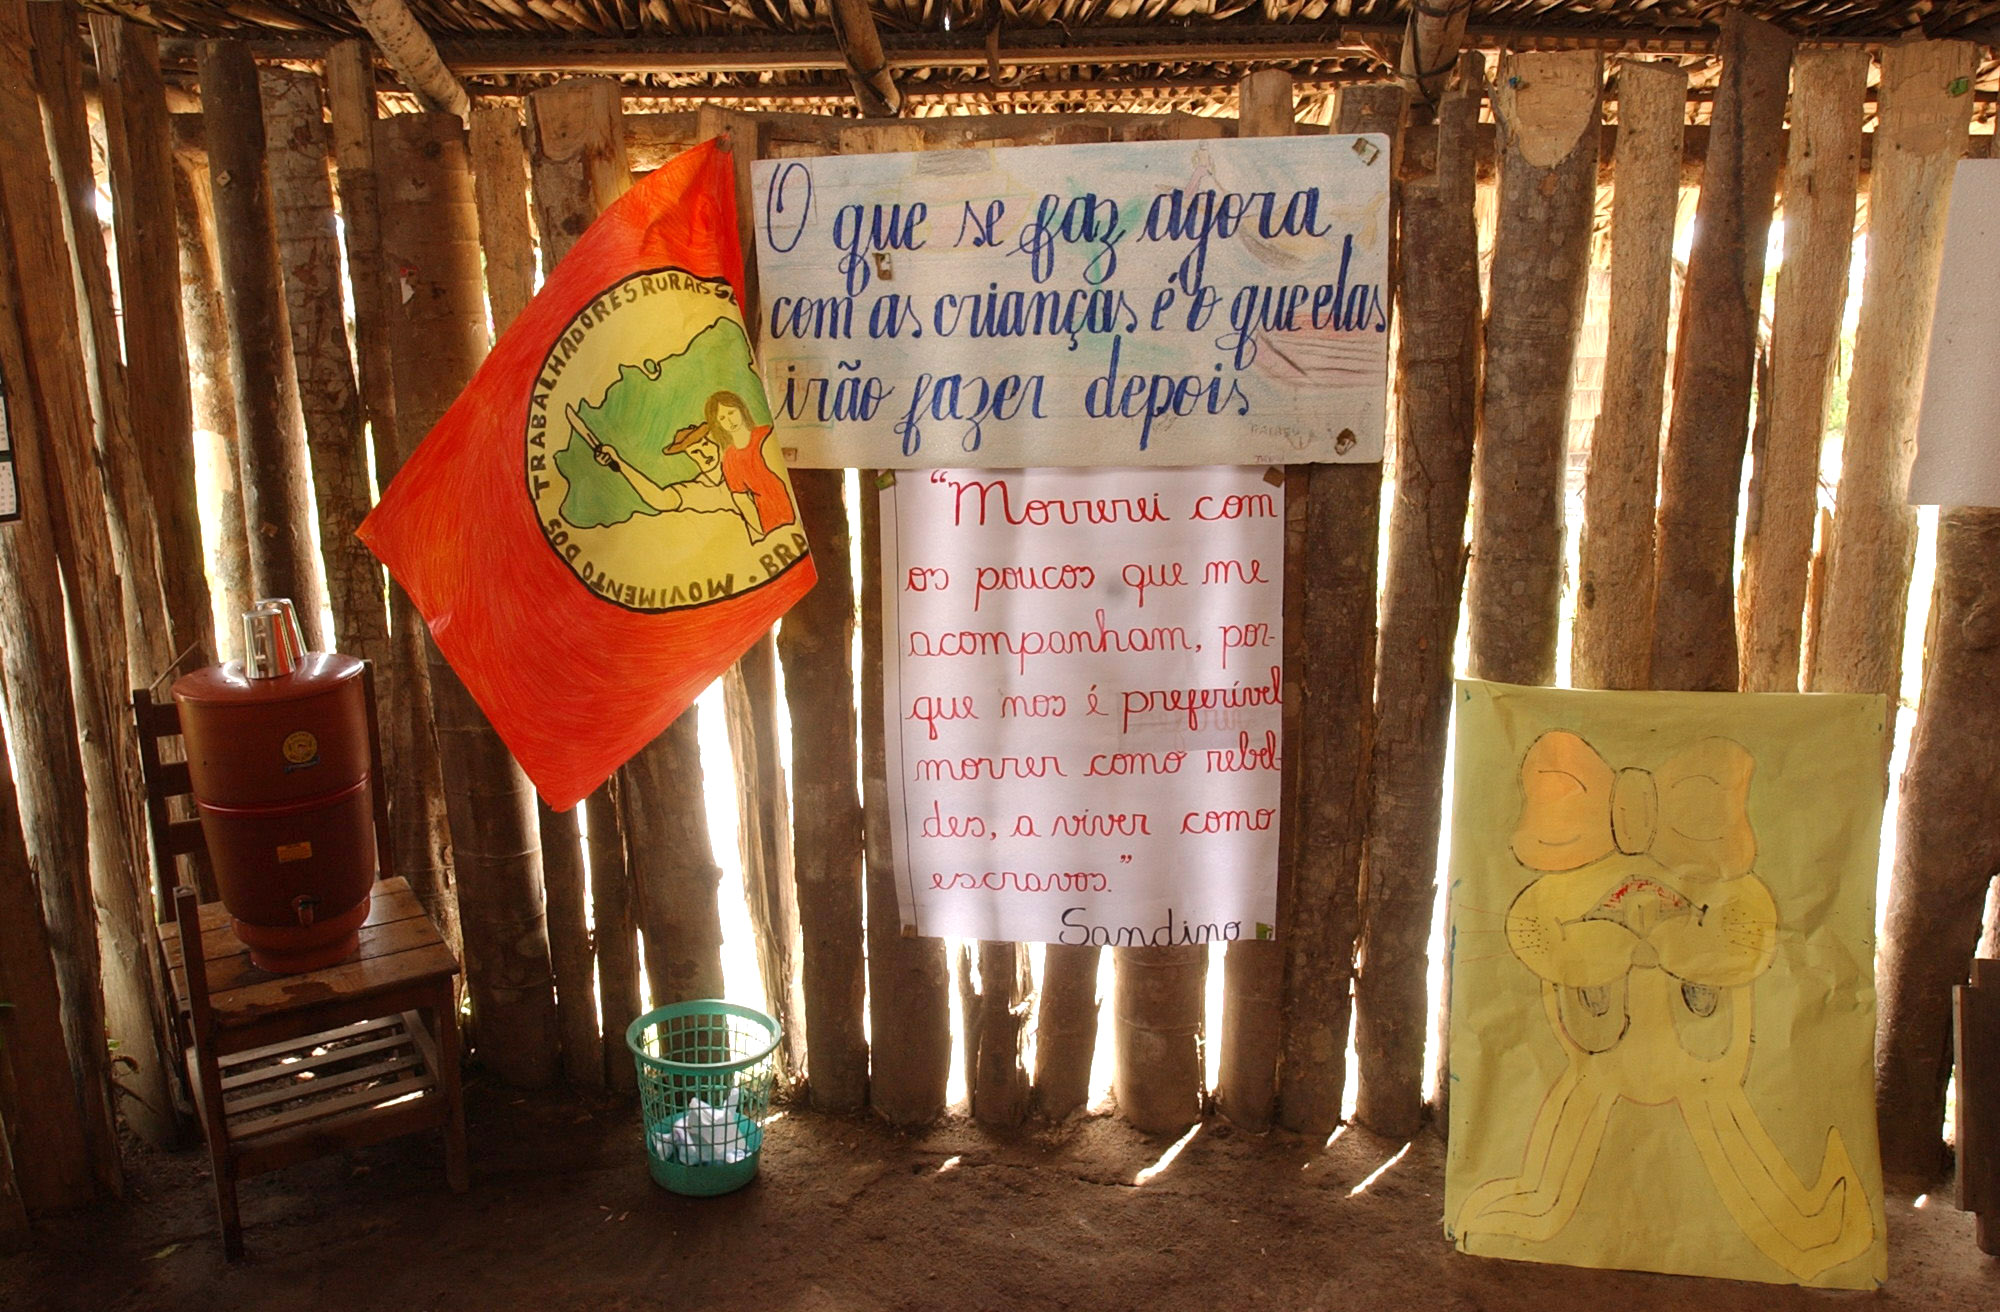 MOVIMENTO DOS TRABALHADORES RURAIS SE
BRA
O que se faz agora
com as crianças é o que elas
irão fazer depois
"Morrerei com
os poucos que me
acompanham, por-
que nos é preferível
morrer como rebel-
des, a viver como
escravos."
Sandino